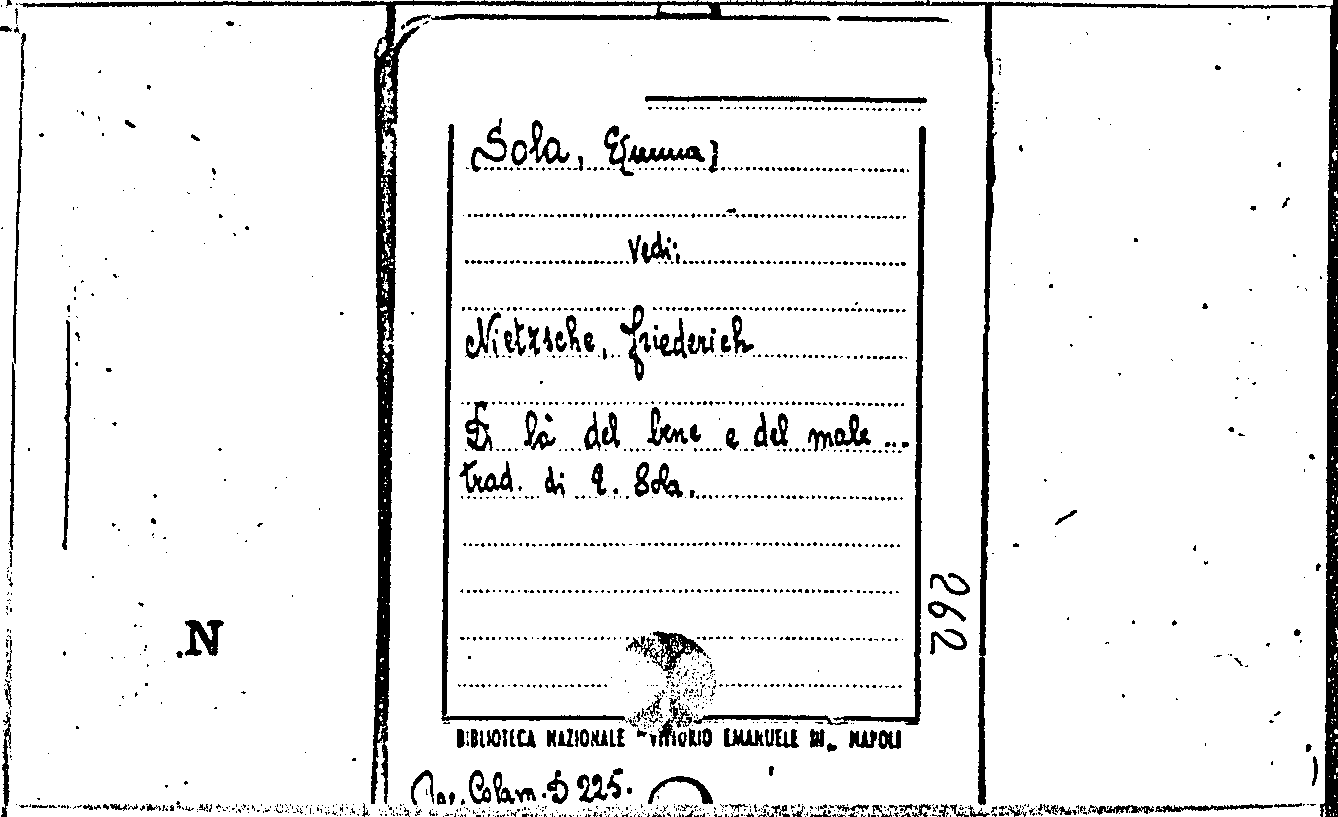 Sola, E[mma]
Vedi:
Nietzsche, Friederich
Di là del bene e del male ...
trad. di E. Sola.
262
.N
BIBLIOTECA NAZIONALE "VITTORIO EMANUELE III" NAPOLI
Colam. D 225.